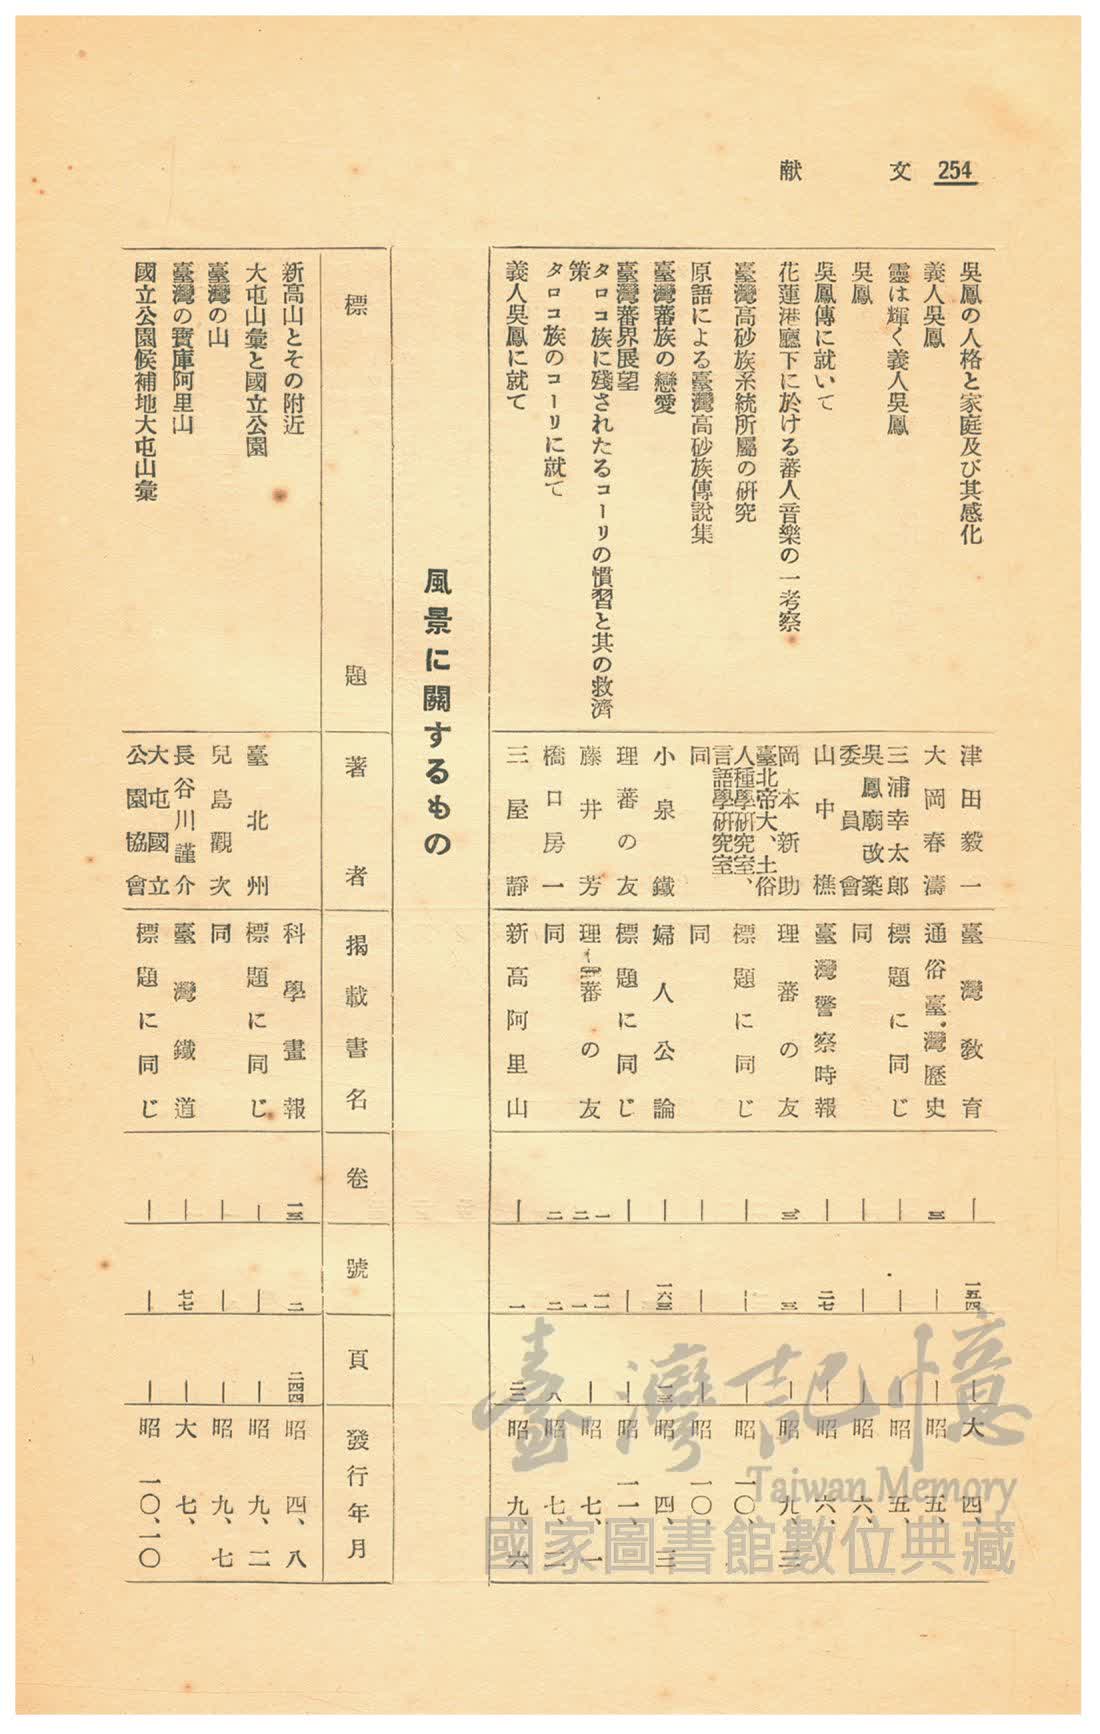 254 文献
吳鳳の人格と家庭及び其感化 津田毅一 臺灣敎育 ― 一五四 ― 大 四、
義人吳鳳 大岡春濤 通俗臺灣歷史 三 ― ― 昭 五、
靈は輝く義人吳鳳 三浦幸太郎 標題に同じ ― ― ― 昭 五、
吳鳳 吳鳳廟改築委員會 同 ― ― ― 昭 六、
吳鳳傳に就いて 山中樵 臺灣警察時報 ― 二七 ― 昭 六、
花蓮港廳下に於ける蕃人音樂の一考察 岡本新助 理蕃の友 三 三 ― 昭 九、三
臺灣高砂族系統所屬の硏究 臺北帝大、土俗人種學硏究室、 標題に同じ ― ― ― 昭 一〇、
原語による臺灣高砂族傳說集 言語學硏究室 同 同 ― ― ― 昭 一〇、
臺灣蕃族の戀愛 小泉鐵 婦人公論 ― 一六三 昭 四、三
臺灣蕃界展望 理蕃の友 標題に同じ ― ― ― 昭 一一、
タロコ族に殘されたるコーリの慣習と其の救濟策 藤井芳 理蕃の友 一二 一一一 ― 昭 七、一
タロコ族のコーリに就て 橋口房一 同 二 二 八 昭 七、二
義人吳鳳に就て 三屋靜 新高阿里山 ― 一 三三 昭 九、六
風景に關するもの
標題 著者 揭載書名 卷 號 頁 發行年月
新高山とその附近 科學畫報 一三 二 二四四 昭 四、八
大屯山彙と國立公園 臺北州 標題に同じ ― ― ― 昭 九、二
臺灣の山 兒島觀次 同 ― ― ― 昭 九、七
臺灣の寶庫阿里山 長谷川謹介 臺灣鐵道 ― 七七 ― 大 七、
國立公園候補地大屯山彙 大屯國立公園協會 標題に同じ ― ― ― 昭 一〇、一〇
臺灣記憶
Taiwan Memory
國家圖書館數位典藏